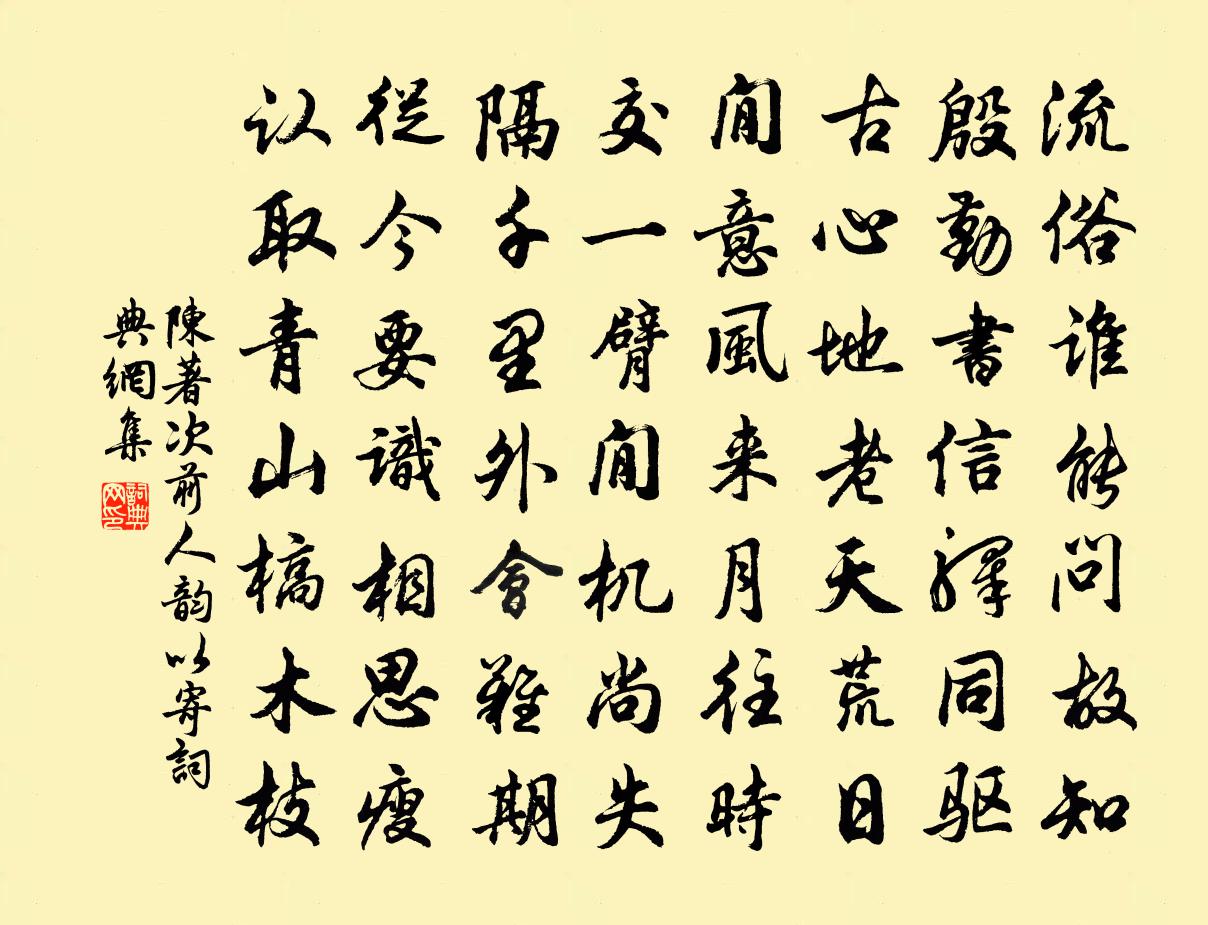 流俗谁能问故知
殷勤書信驛同驱
古心地老天荒日
閒意風来月往時
交一臂閒机尚失
隔千里外會難期
從今要識相思瘦
认取青山槁木枝
陳著次前人韵以寄詞
典網集
詞典
网印